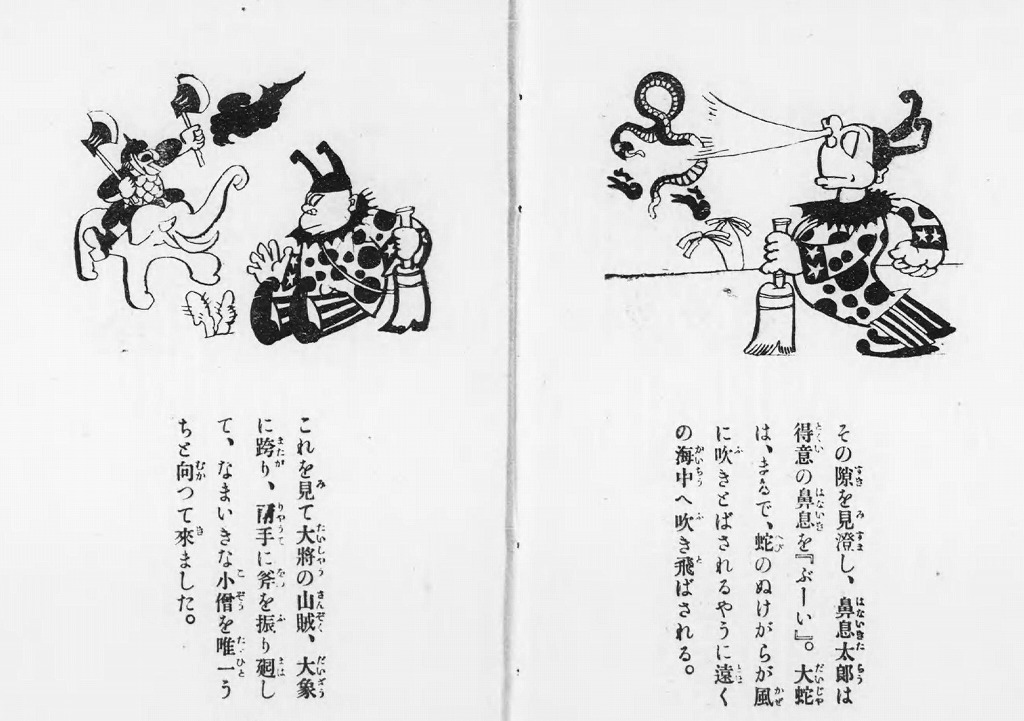 その隙を見澄し、鼻息太郎は
得意の鼻息を『ぶーい』。大蛇
は、まるで、蛇のぬけがらが風
に吹きとばされるやうに遠く
の海中へ吹き飛ばされる。
これを見て大將の山賊、大象
に跨り、兩手に斧を振り廻し
て、なまいきな小僧を唯一う
ちと向つて來ました。